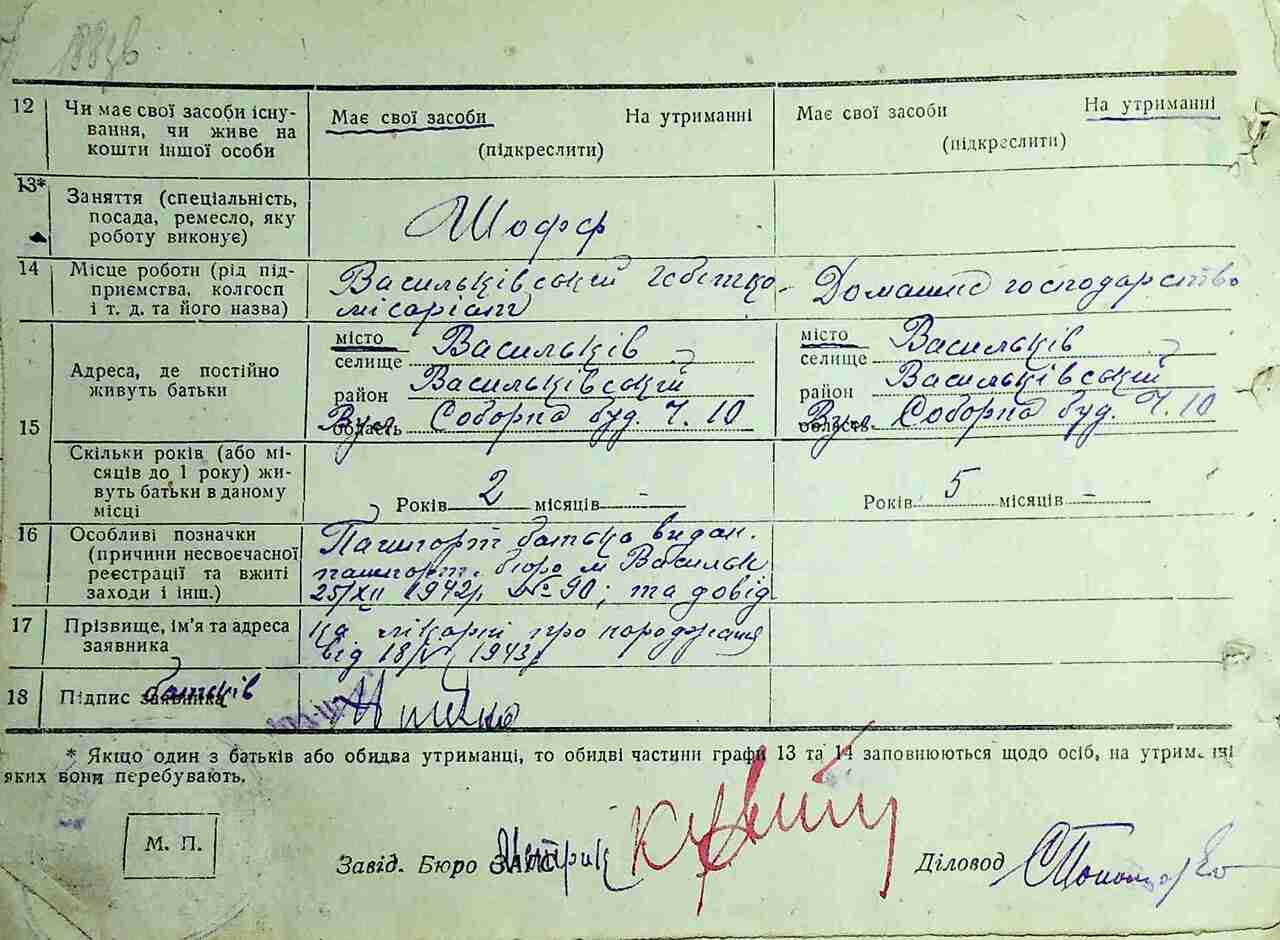 12 Чи має свої засоби існу-
вання, чи живе на
кошти іншої особи
Має свої засоби На утриманні
(підкреслити)
Має свої засоби На утриманні
(підкреслити)
13* Заняття (спеціальність,
посада, ремесло, яку
роботу виконує)
Шофер
14 Місце роботи (рід під-
приємства, колгосп
і т. д. та його назва)
Васильківський Гебітко-
місаріат
Домашнє господарство
15
Адреса, де постійно
живуть батьки
місто Васильків
селище
район Васильківський
область Вул. Соборна буд. Ч. 10
місто Васильків
селище
район Васильківський
область Вул. Соборна буд. Ч. 10
Скільки років (або мі-
сяців до 1 року) жи-
вуть батьки в даному
місці
Років 2 місяців –
Років 5 місяців –
16 Особливі позначки
(причини несвоєчасної
реєстрації та вжиті
заходи і інш.)
Пашпорт батька видан.
пашпорт. бюро м Васильк
25/XII 1942р. № 90; та довід
17 Прізвище, ім'я та адреса
заявника
ка лікарні про народження
від 18/V 1943р
18 Підпис заявника батьків
* Якщо один з батьків або обидва утриманці, то обидві частини графи 13 та 14 заповнюються щодо осіб, на утриманні
яких вони перебувають.
М. П.
Завід. Бюро ЗАГС Метрик
Діловод